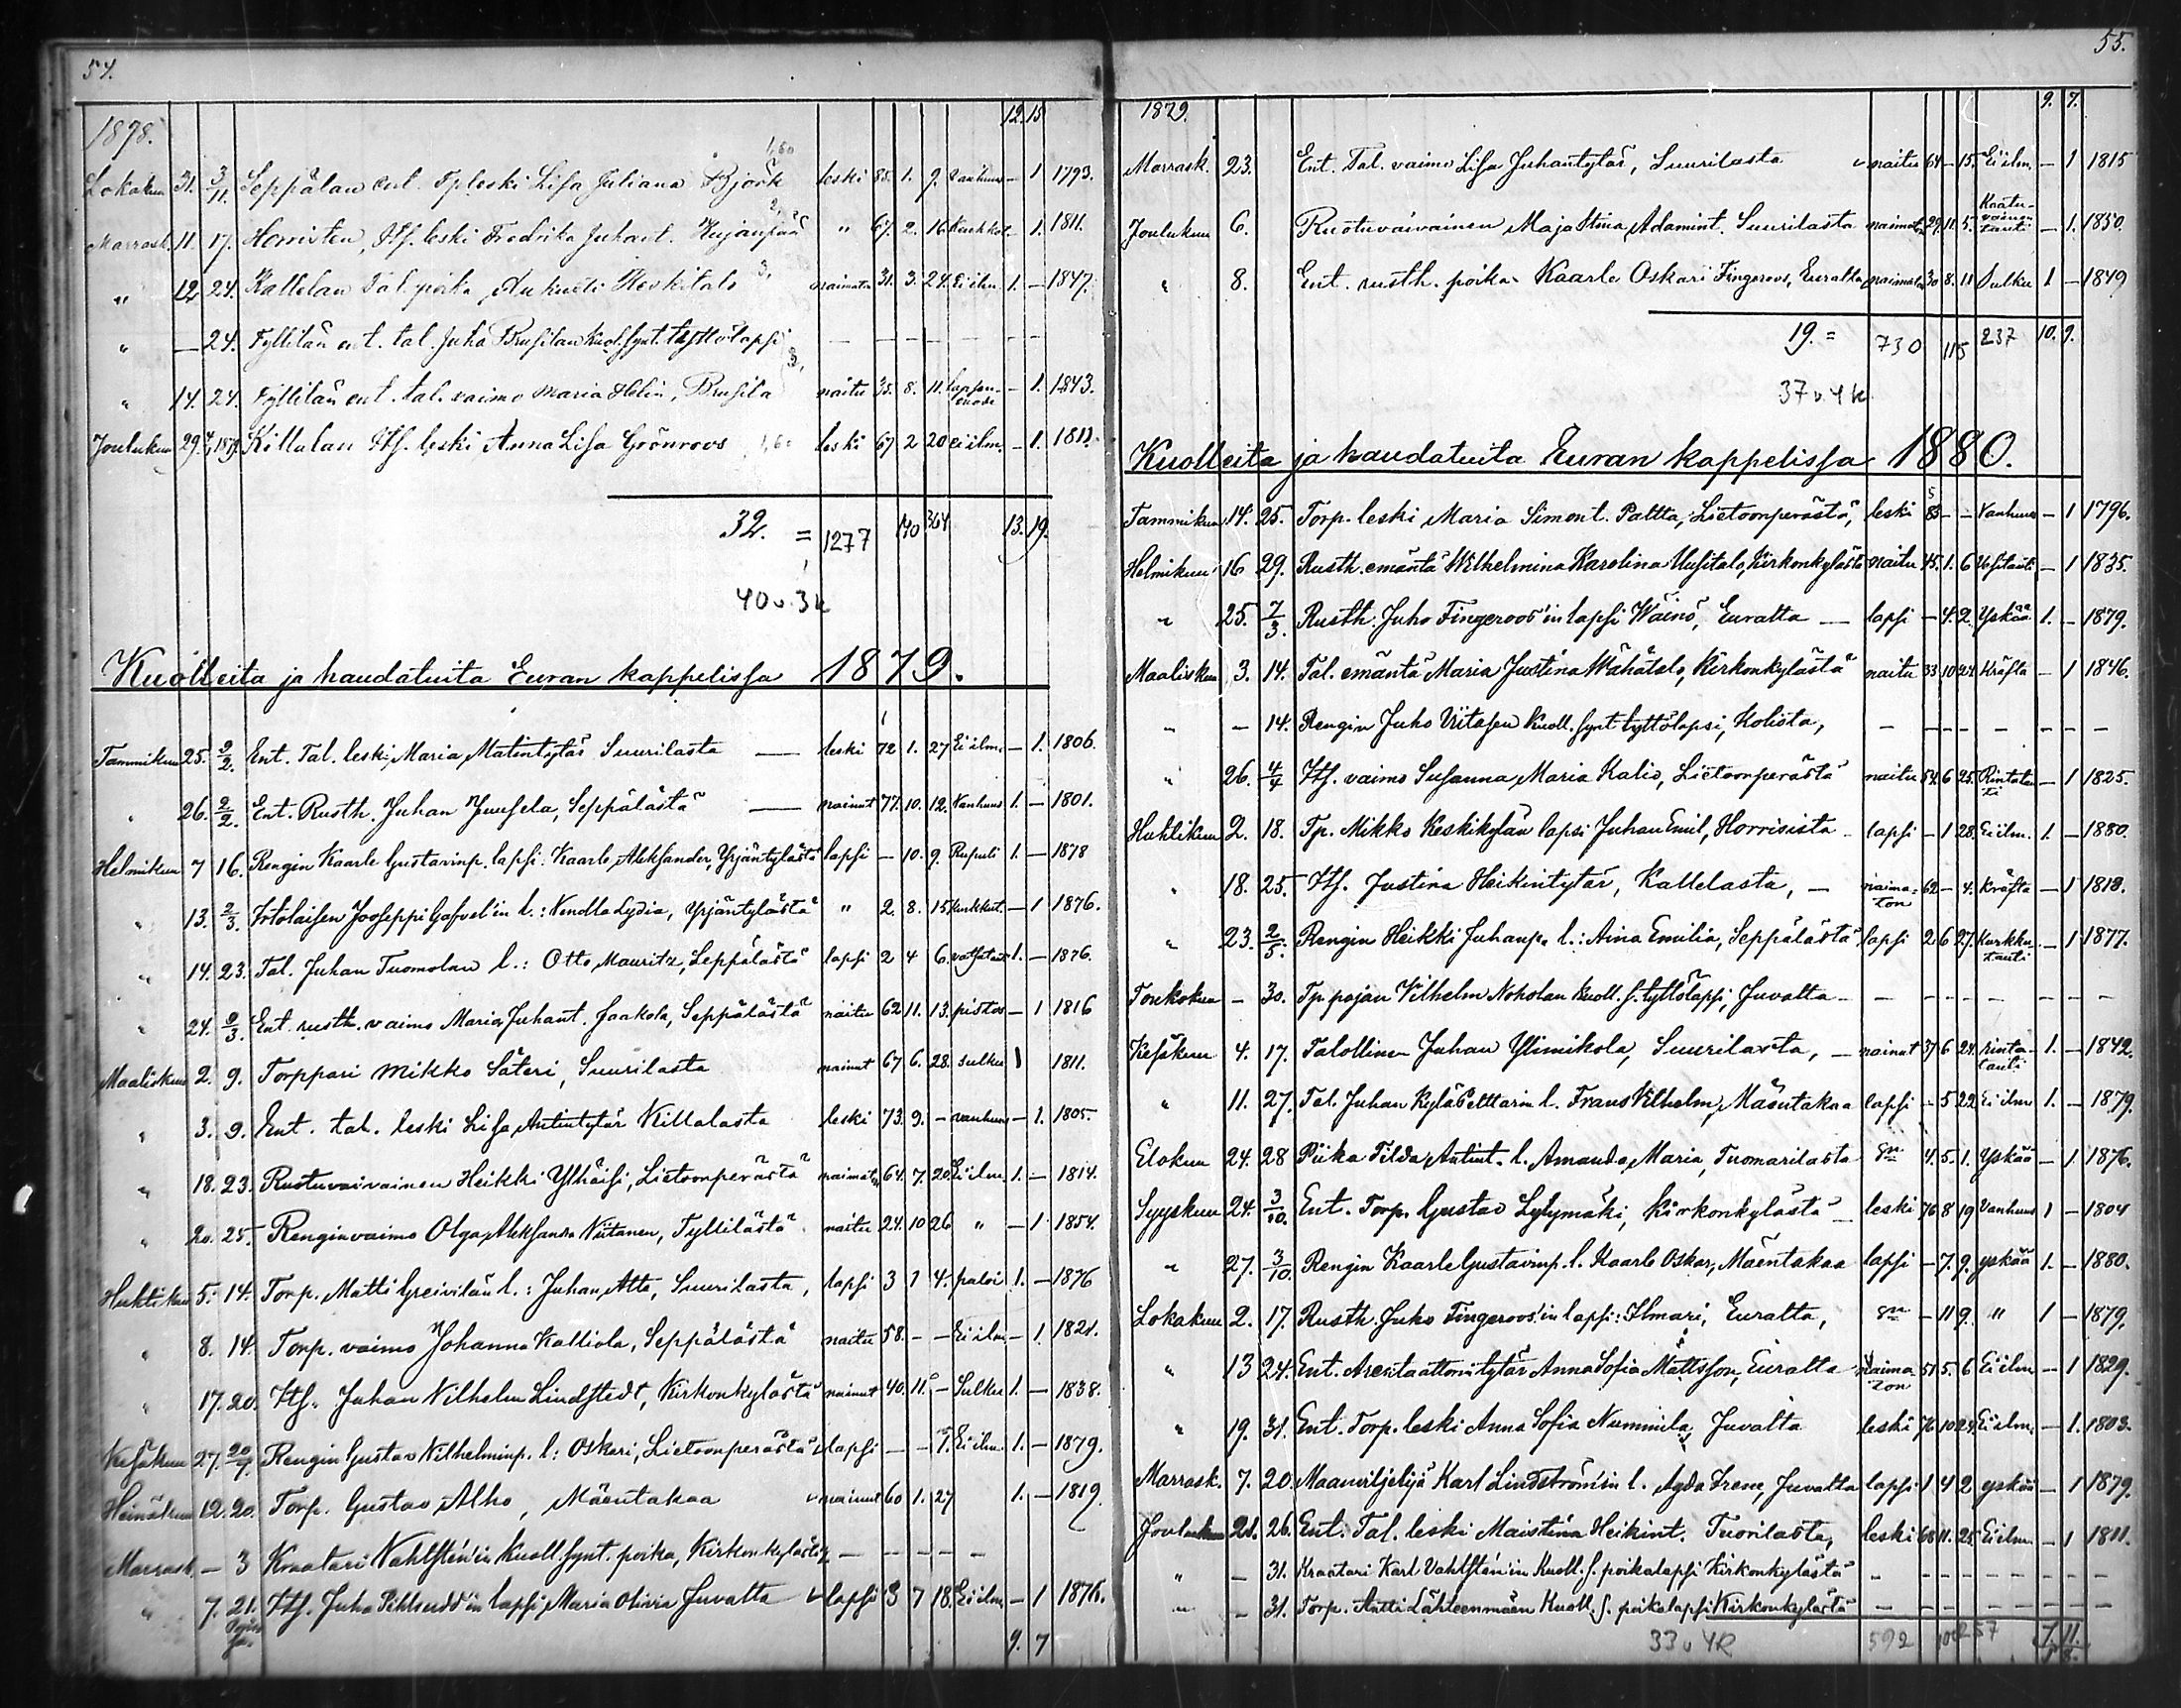 54.
1878. 12. 15
1,60
Lokakuu 31. 3/11. Seppälän ent. Tp leski Lisa Juliana Björk leski 85. 1. 9. Vanhuus – 1 1793.
2,
Marrask. 11. 17. Itf. leski Fredrika Juhant. Kujanpää " 67. 2. 16 – 1. 1811.
3,
" 12 24. Kallelan Tal. poika naimaton 31. 3. 24. Ei ilm. 1. – 1847.
" – 24. Tyllilän ent. tal. Juha Brusilan kuol. synt. tyttölapsi – – – – – –
3,
" 14. 24. Tyllilän ent. tal. vaimo Maria Helin, Brusila naitu 35. 8. 11. lapsen- – 1. 1843.
Joulukuu 29. 4/1 1879. Itf. leski Anna Lisa Grönroos 1,60 leski 67 2 20 ei ilm. – 1. 1811.
32. = 1277 140 364 13. 19.
40 v. 3 k
Kuolleita ja haudatuita Euran kappelissa 1879.
Tammikuu 25. 2/2. Ent. Tal. leski, Maria Matintytär Suurilasta — leski 72 1. 27 Ei ilm. – 1. 1806.
" 26. 2/2. Ent. Rusth. Juhan Juusela, Seppälästä — nainut 77. 10. 12. Vanhuus 1. – 1801.
Helmikuu 7 16. Rengin Kaarle Gustavinp. lapsi: Kaarlo Aleksander, Yrjäntylästä lapsi – 10. 9. Rupuli 1. – 1878
" 13. 2/3. Itsellisen Jooseppi l.: Vendla Lydia, Yrjäntylästä " 2. 8. 15 Kurkkut. – 1 1876.
" 14. 23. Tal. Juhan Tuomolan l.: Otto Mauritz, Seppälästä lapsi 2 4 6. 1. – 1876.
" 24. 9/3. Ent. rusth. vaimo Maria Juhant. Jaakola, Seppälästä naitu 62 11. 13. pistos – 1 1816
Maaliskuu 2. 9. Torppari Mikko Säteri, Suurilasta nainut 67 6. 28. sulku 1 1811.
" 3. 9. Ent. tal. leski Lisa Antintytär Killalasta leski 73. 9. – vanhuus – 1. 1805.
" 18. 23. Ruotuvaivainen Heikki Ylhäisi, Lietoonperästä naimaton 64. 7. 20. Ei ilm. 1. – 1814.
" 20. 25. Renginvaimo Olga Aleksandra Niitanen, Tyllilästä naitu 24. 10 26 " – 1 1854.
Huhtikuu 5. 14. Torp. Matti Greivilän l.: Juhan Atte, Suurilasta, lapsi 3 1 4. paloi 1. – 1876
" 8. 14. Torp. vaimo Johanna Kalliola, Seppälästä naitu 58. – – Ei ilm – 1. 1821.
" 17. 20. Itf. Juhan Vilhelm Lindstedt, Kirkonkylästä nainut 40. 11. – Sulku 1. – 1838.
Kesäkuu 27. 20/7. Rengin Gustav Vilhelminp. l: Oskari, Lietoonperästä lapsi – – 7. Ei ilm. 1. – 1879.
Heinäkuu 12. 20. Torp. Gustav Alho, Mäentakaa nainut 60 1. 27 1. – 1819
Marrask. – 3 Kraatari Vahlsten'in Kuoll. synt. poika, Kirkonkylästä – – – – –
" 7. 21. Itf. Juha lapsi, Maria Olivia Juvalta lapsi 3 7 18. Ei ilm. – 1 1876.
9. 7
55.
1879. 9. 7.
Marrask. 23. Ent. Tal. vaimo Lisa Juhantytär, Suurilasta naitu 64 – 15. Ei ilm. – 1 1815
Joulukuu 6. Ruotuvaivainen Maja Stina Adamint. Suurilasta naimaton 29. 11. 5. Kaatu- vainen tauti – 1. 1850.
" 8. Ent. rusth. poika Kaarle Oskari Fingeroos, Euralta naimaton 30 8. 11 Sulku 1 – 1849
19. = 730 115 237 10. 9.
37 v. 4 k
Kuolleita ja haudatuita Euran kappelissa 1880.
Tammikuu 14. 25. Torp. leski Maria Simont. Paltta, Lietoonperästä, leski 83 – – Vanhuus – 1 1796.
Helmikuu 16 29. Rusth. emäntä Wilhelmina Karolina Uusitalo, Kirkonkylästä naitu 45. 1. 6 – 1 1835.
" 25. 7/3. Rusth. Juho Fingeroos'in lapsi Wäinö, Euralta — lapsi – 4. 2. Yskää 1. – 1879.
Maaliskuu 3. 14. Tal. emäntä Maria Justina Wähätalo, Kirkonkylästä naitu 33 10 24 Kräfta – 1 1846.
" – 14. Rengin Juho Kuoll. synt. tyttölapsi, – – – – – – –
" 26. 4/4 Itf. vaimo Susanna Maria Kalio, Lietoonperästä naitu 54. 6 25. Rintatau ti – 1 1825.
Huhtikuu 2. 18. Tp. Mikko Keskikylän lapsi Juhan Emil, Horrisista – lapsi – 1 28. Ei ilm. 1. – 1880.
" 18. 25. Itf. Justina Heikintytär, Kallelasta, – naima- ton 62 – 4. Kräfta – 1 1818.
" 23. 2/5. Rengin Heikki Juhanp. l.: Aina Emilia, Seppälästä lapsi 2 6 27. Kurkku tauti – 1 1877.
Toukokuu – 30. Tp. pojan Vilhelm Noholan kuoll. s. tyttölapsi, Juvalta – – – – – – – –
Kesäkuu 4. 17. Talollinen Juhan Ylimikola, Suurilasta, – nainut 37 6 24. rinta- tauti 1. – 1842.
" 11. 27. Tal. Juhan l. Frans Vilhelm, Mäentakaa lapsi – 5 22 Ei ilm 1. – 1879.
Elokuu 24. 28 Piika Tilda Antint. l. Amanda Maria, Tuomarilasta 4. 5. 1. Yskää – 1. 1876.
Syyskuu 24. 3/10. Ent. Torp. Gustav Lylymäki, Kirkonkylästä leski 76 8 19 Vanhuus 1 – 1804
" 27. 3/10. Rengin Kaarle Gustavinp. l. Kaarle Oskar, Mäentakaa lapsi – 7. 9. yskää 1. – 1880.
Lokakuu 2. 17. Rusth. Juho Fingeroos'in lapsi: Ilmari, Euralta, – 11 9. " 1 – 1879.
" 13 24. Ent. Arentaattorin tytär Anna Sofia Mattsson, Euralta naima ton 51 5. 6 Ei ilm – 1 1829.
" 19. 31. Ent. Torp. leski Anna Sofia Nummila, Juvalta leski 76 10 24. Ei ilm. – 1. 1803.
Marrask. 7. 20. Maanviljelijä Karl Lindström'in l. Agda Irene, Juvalta lapsi 1 4 2 yskää – 1 1879.
Joulukuu 21. 26. Ent. Tal. leski Maistina Heikint. Tuorilasta, leski 68 11. 25. Ei ilm – 1 1811.
" – 31. Kraatari Karl Vahlsten'in Kuoll. s. poikalapsi Kirkonkylästä – – – – – – –
" – 31. Torp. Antti Lähteenmäen Kuoll. s. poikalapsi Kirkonkylästä – – – – – – –
33 v 4 K 592 257